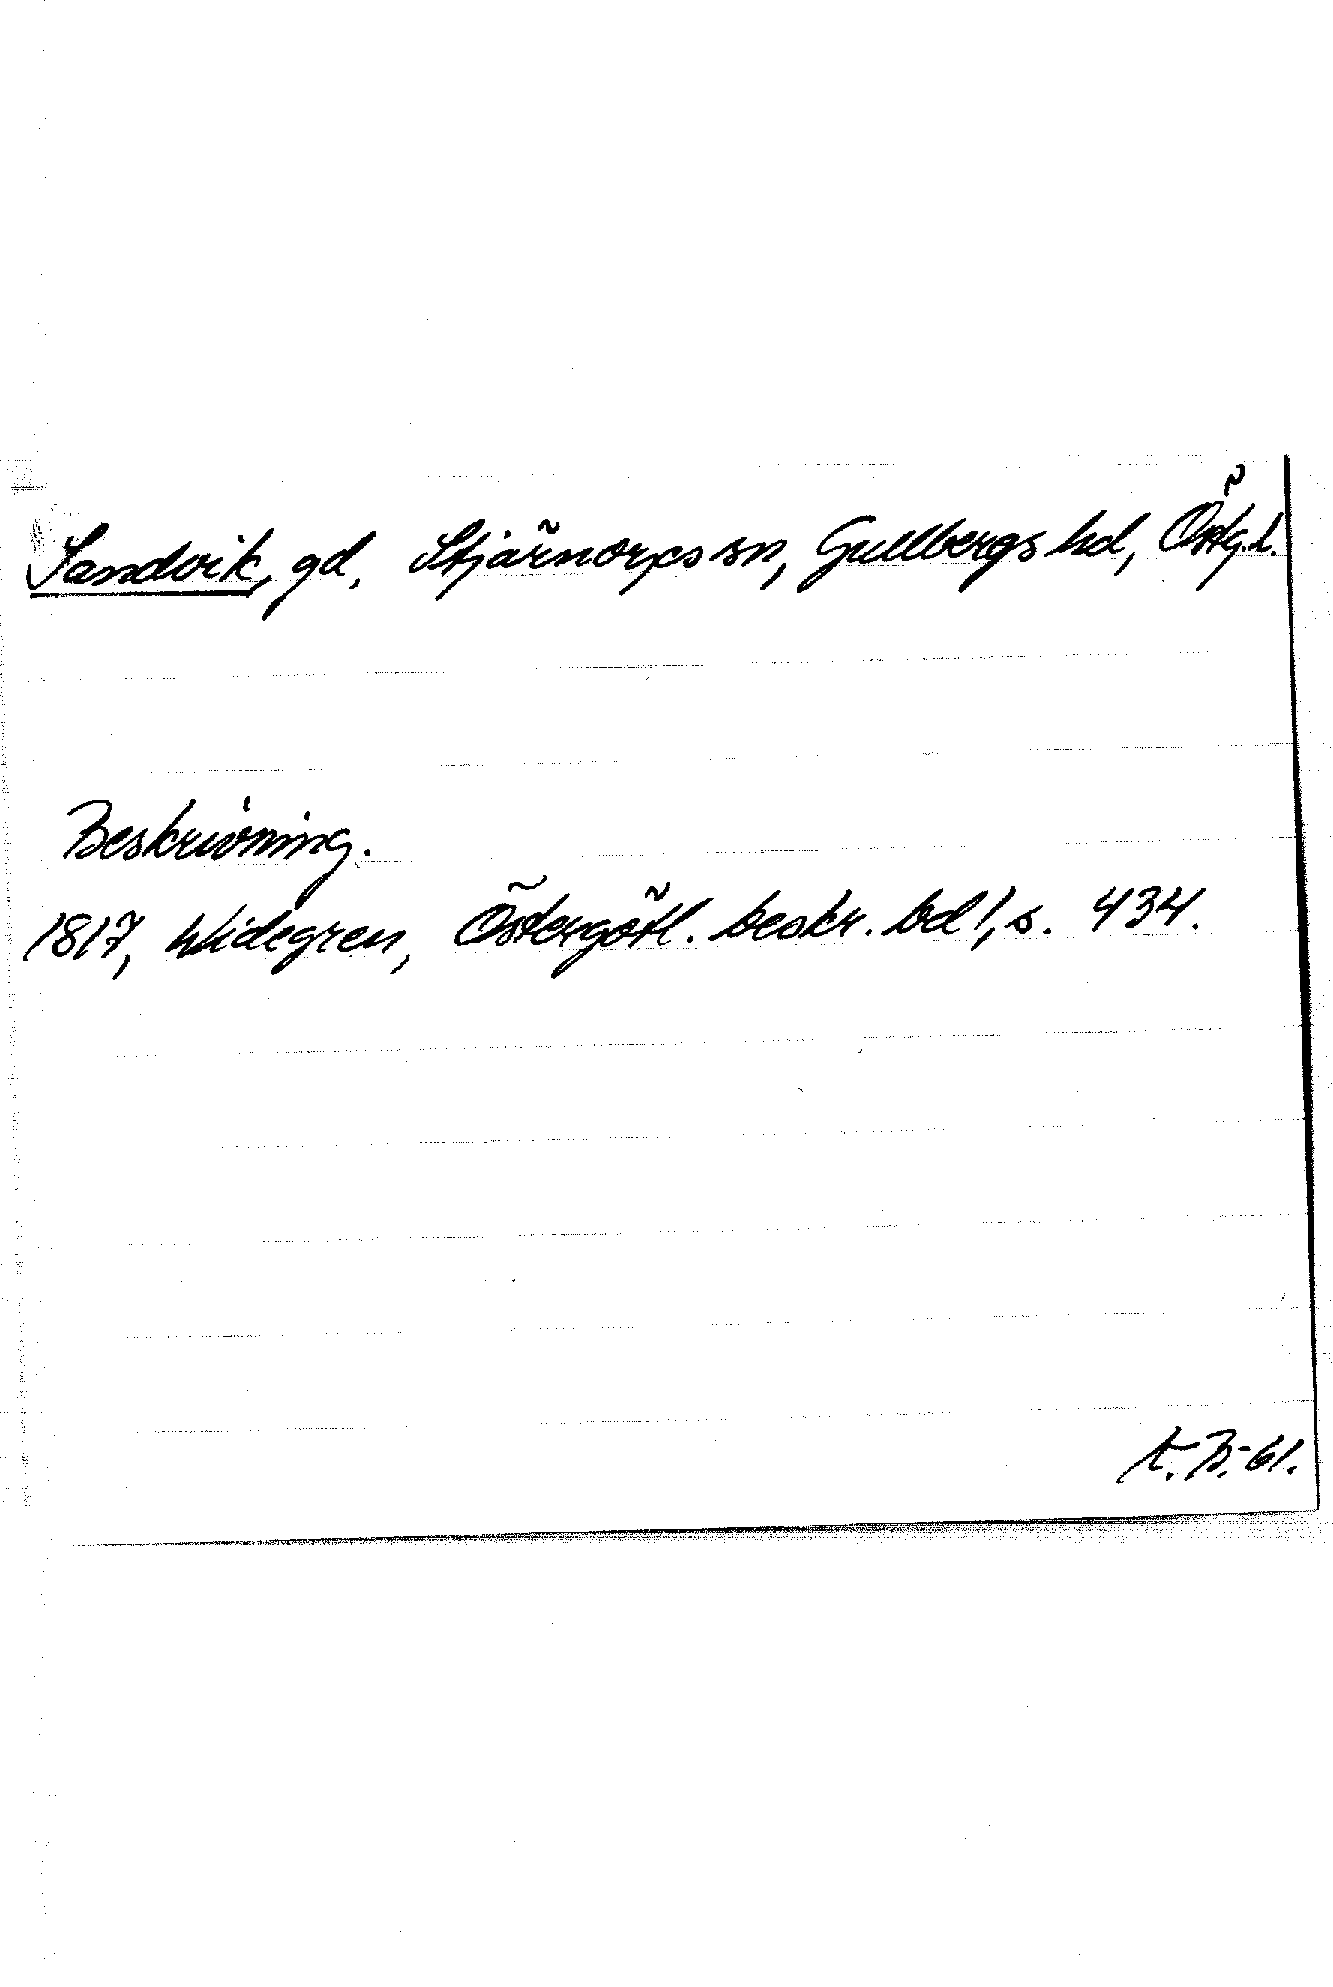 Sandvik, gd, Stjärnorps sn, Gullbergs hd, Östg.l.
Beskrivning.
1817, Widegren, Östergötl. beskr. bd 1, s. 434.
A. B.-61.